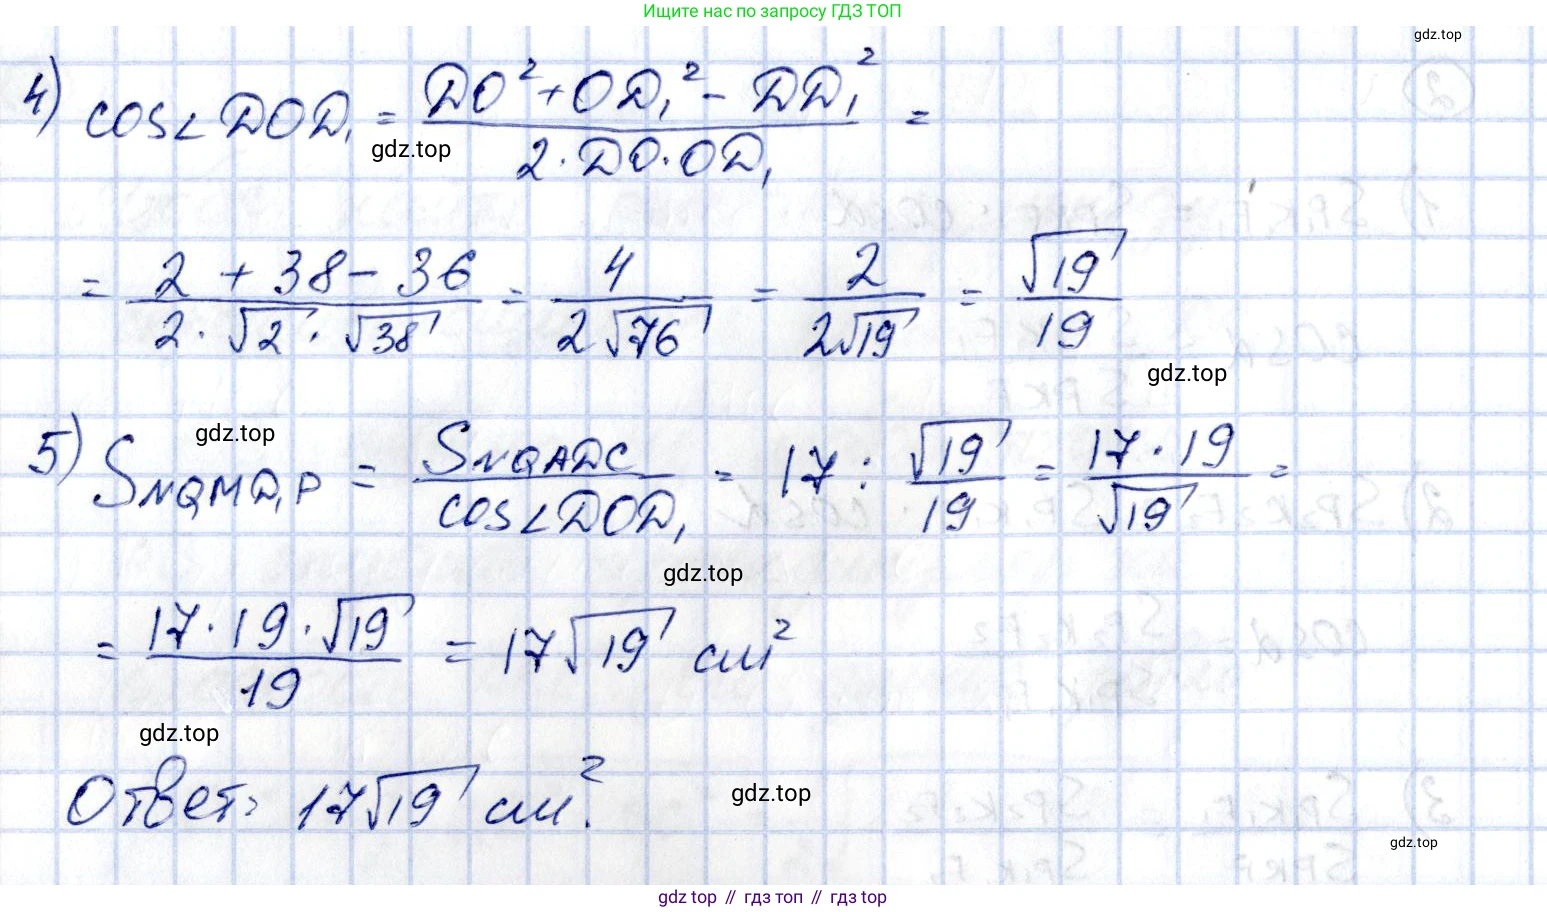 Ищите нас по запросу ГДЗ ТОП
gdz.top
4) cos∠DOD₁ = (DO² + OD₁² - DD₁²) / (2·DO·OD₁) =
gdz.top
= (2 + 38 - 36) / (2·√2·√38) = 4 / (2√76) = 2 / (2√19) = √19 / 19
gdz.top
gdz.top
5) S_NQMD₁P = S_NQADC / cos∠DOD₁ = 17 : √19/19 = (17·19) / √19 =
gdz.top
= (17·19·√19) / 19 = 17√19 см²
gdz.top
Ответ: 17√19 см².
gdz.top
gdz.top
gdz top // гдз топ // гдз top